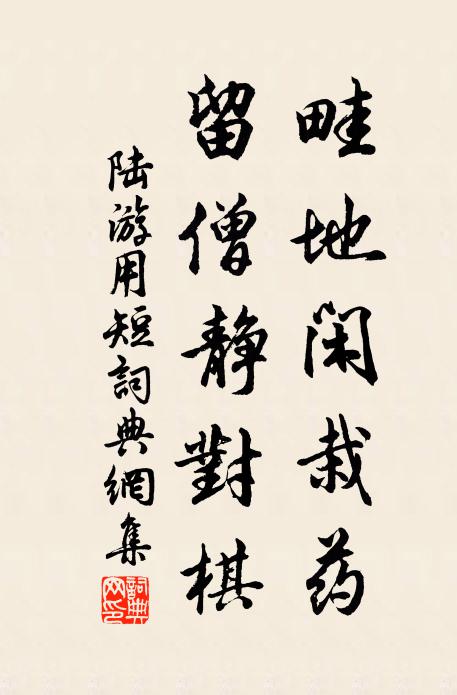 畦地閑栽药
留僧静對棋
陆游用短詞典網集
詞典网印